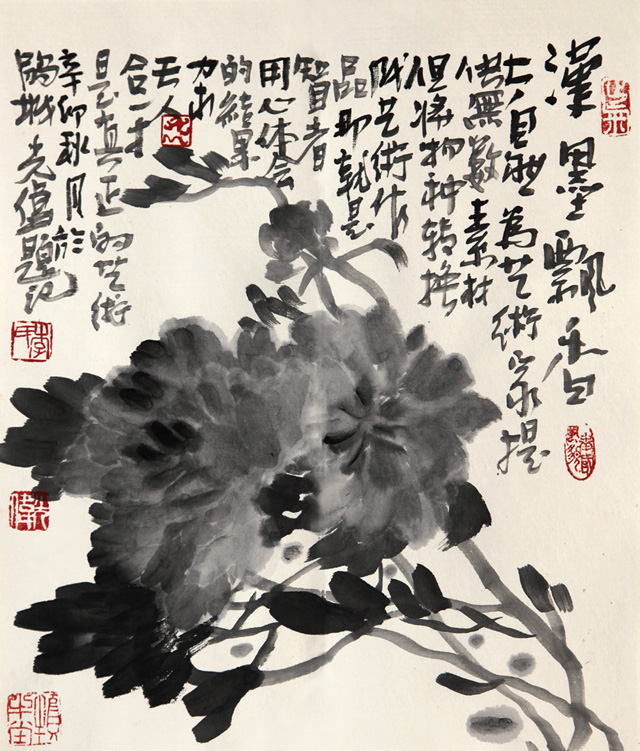 漢墨飄香
大自然為艺術家提
供無數素材
但将物种轉换
成艺術作
品即就是
智者
用心体会
的結果
力求
天人
合一才
是真正的艺術
辛卯秋月於
陽城光僖題记